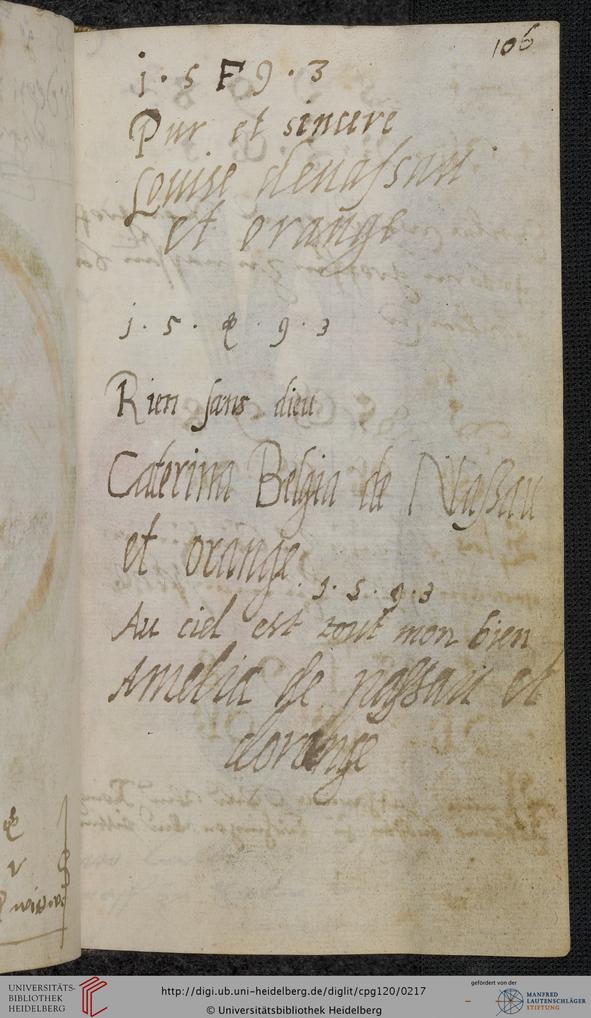 106
1 · 5 F 9 · 3
Pur et sincere
Louise denassau
et orange
1 · 5 · 9 · 3
Rien sans dieu
Caterina Belgia de Nassau
et orange
1 · 5 · 9 · 3
Au ciel est tout mon bien
Amelia de nassau et
dorange
UNIVERSITÄTS-
BIBLIOTHEK
HEIDELBERG
http://digi.ub.uni-heidelberg.de/diglit/cpg120/0217
© Universitätsbibliothek Heidelberg
gefördert von der
MANFRED
LAUTENSCHLÄGER
STIFTUNG